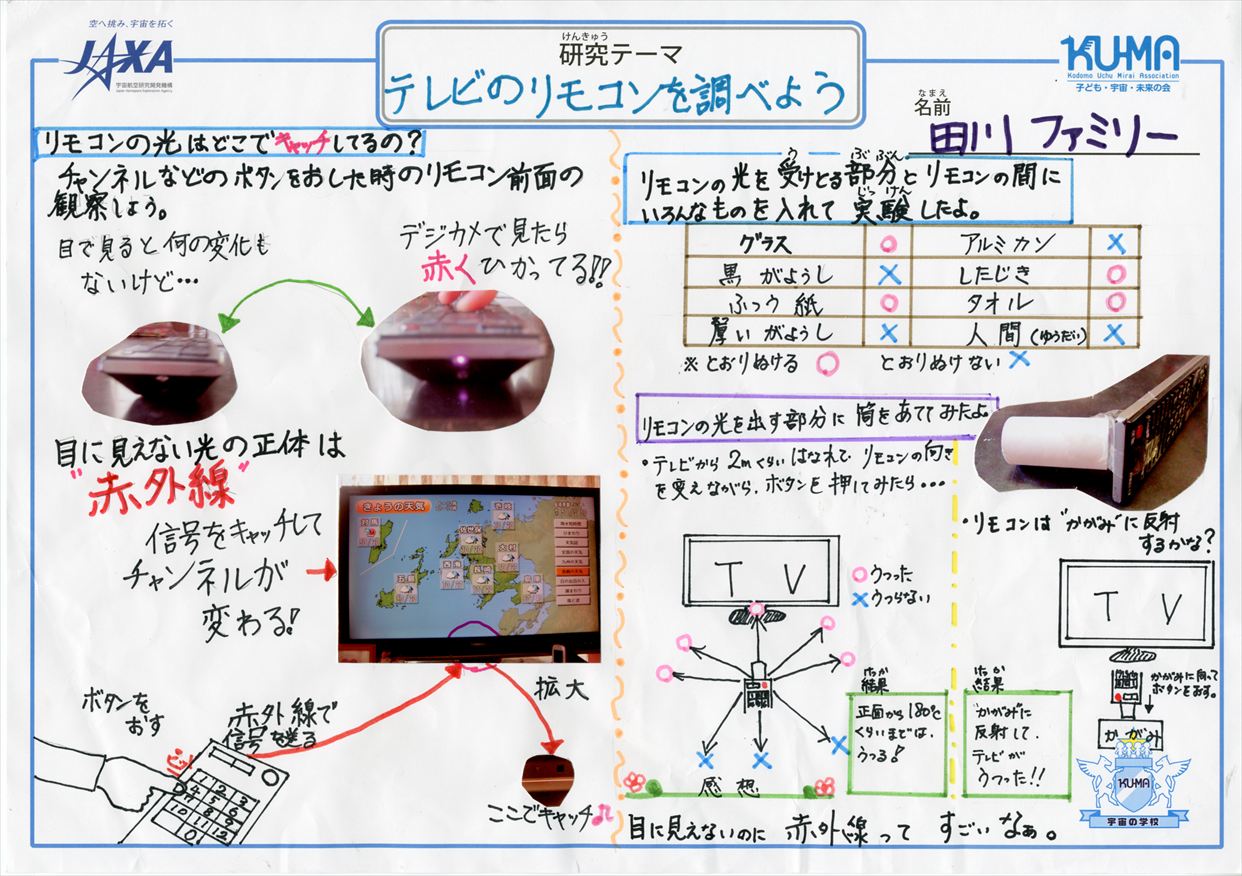 空へ挑み、宇宙を拓く
JAXA
宇宙航空研究開発機構
Japan Aerospace Exploration Agency
けんきゅう
研究テーマ
テレビのリモコンを調べよう
KU-MA
Kodomo Uchu Mirai Association
子ども・宇宙・未来の会
なまえ
名前
田川 ファミリー
リモコンの光はどこでキャッチしてるの?
チャンネルなどのボタンをおした時のリモコン前面の
観察しよう。
目で見ると何の変化も
ないけど…
デジカメで見たら
赤くひかってる!!
目に見えない光の正体は
"赤外線"
信号をキャッチして
チャンネルが
変わる!
きょうの天気
対馬
壱岐
佐世保
大村
五島
西海
長崎
島原
拡大
ボタンを
おす
赤外線で
信号を送る
ピッ
1 2 3
4 5 6
7 8 9
10 11 12
0
ここでキャッチ♫
う ぶ ぶん
リモコンの光を受けとる部分とリモコンの間に
じっ けん
いろんなものを入れて実験したよ。
グラス ○ アルミカン ×
黒 がようし × したじき ○
ふつう 紙 ○ タオル ○
厚い がようし × 人間(ゆうだい) ×
※とおりぬける ○ とおりぬけない ×
リモコンの光を出す部分に筒をあててみたよ。
・テレビから2mくらいはなれて、リモコンの向き
を変えながら、ボタンを押してみたら・・・
TV
○うつった
×うつらない
けっか
結果
正面から180℃
くらいまでは、
うつる!
・リモコンは"かがみ"に反射
するかな?
TV
かがみに向って
ボタンをおす。
かがみ
けっか
結果
"かがみ"に
反射して、
テレビが
うつった!!
KU-MA
宇宙の学校
感想
目に見えないのに 赤外線って すごいなぁ。